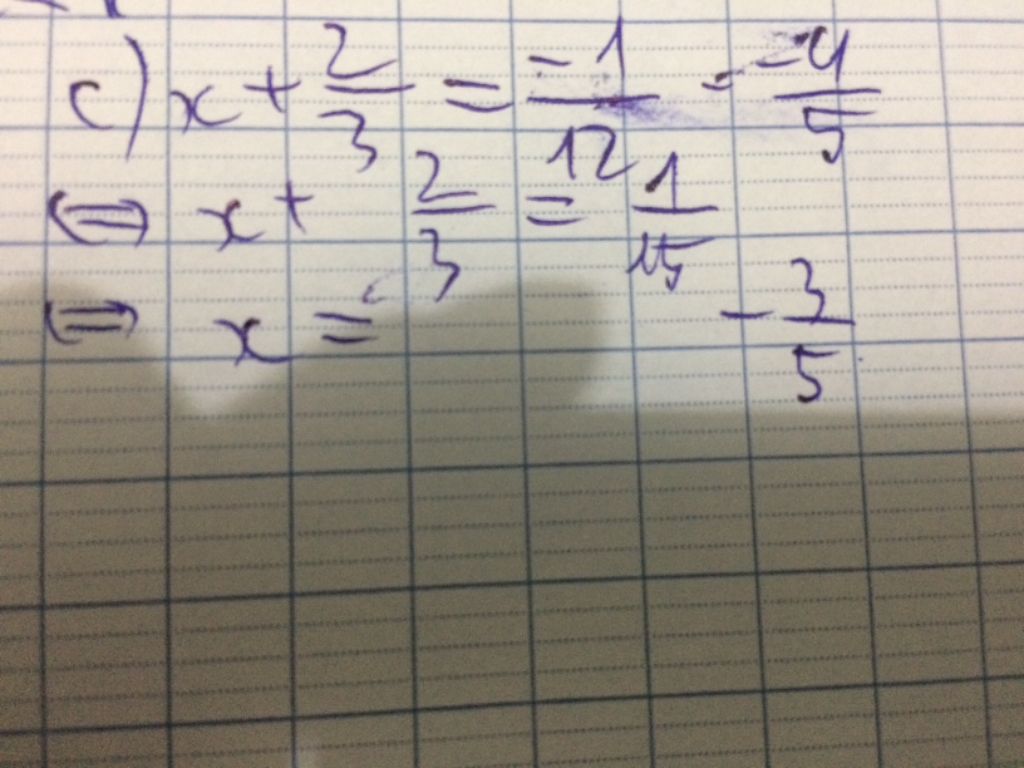 c) x + 2/3 = -1/12 · -4/5
⟺ x + 2/3 = 1/15
⟺ x = -3/5